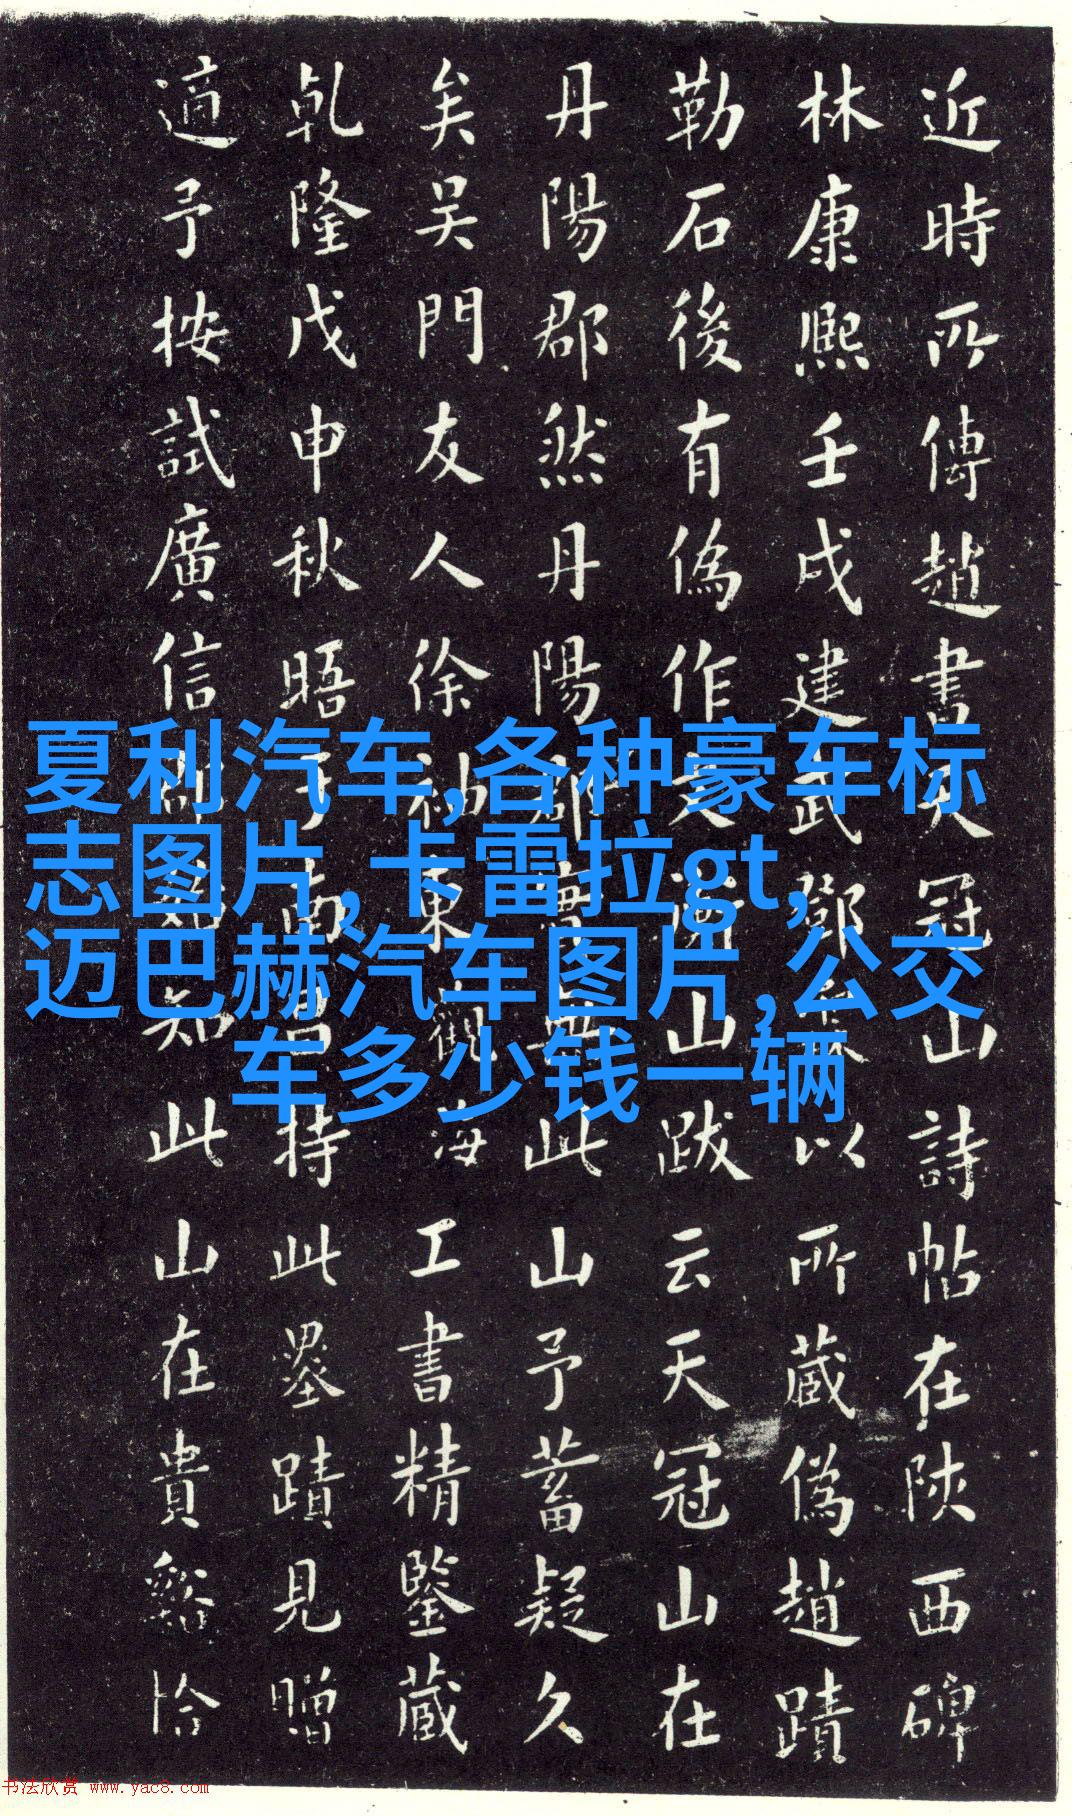 近時所傳趙書天冠山詩帖在陝西碑
林康熙壬戌建武鄧以所藏偽趙蹟
勒石後有偽作文衡山跋云天冠山在
丹陽郡然丹陽郡實無此山予蓄疑久
矣吳門友人徐袖東觀海工書精鑒藏
乾隆戊申秋晤于南昌持此墨蹟見贈
適予按試廣信知此山在貴谿恰
夏利汽车,各种豪车标
志图片,卡雷拉gt,
迈巴赫汽车图片,公交
车多少钱一辆
书法欣赏 www.yac8.com